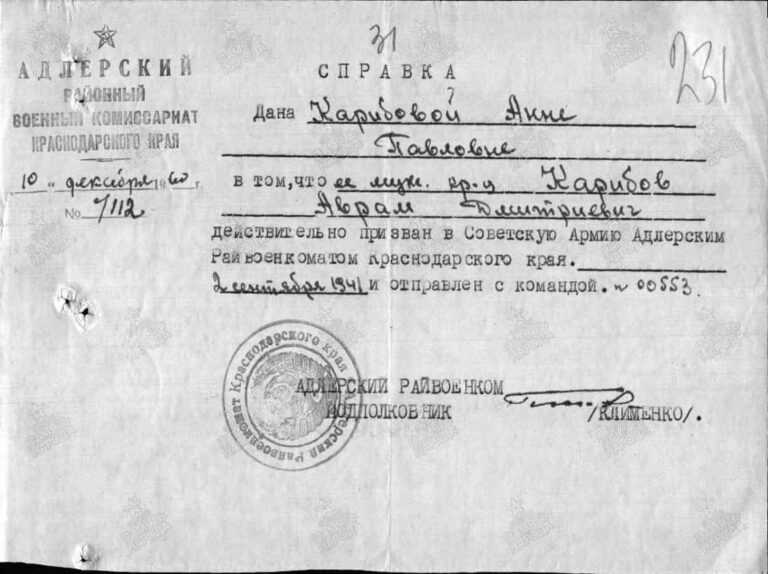 31
231
АДЛЕРСКИЙ
РАЙОННЫЙ
ВОЕННЫЙ КОМИССАРИАТ
КРАСНОДАРСКОГО КРАЯ
10 " декабря 1960 г.
№ 7/112
СПРАВКА
Дана Карибовой Анне
Павловне
в том, что ее муж. кр-ц Карибов
Аврам Дмитриевич
действительно призван в Советскую Армию Адлерским
Райвоенкоматом Краснодарского края.
2 сентября 1941 и отправлен с командой. № 00553.
АДЛЕРСКИЙ РАЙВОЕНКОМ
ПОДПОЛКОВНИК /КЛИМЕНКО/.
Адлерский Райвоенкомат Краснодарского края